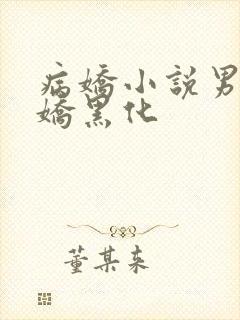 病嬌小說男
嬌黑化
董某來